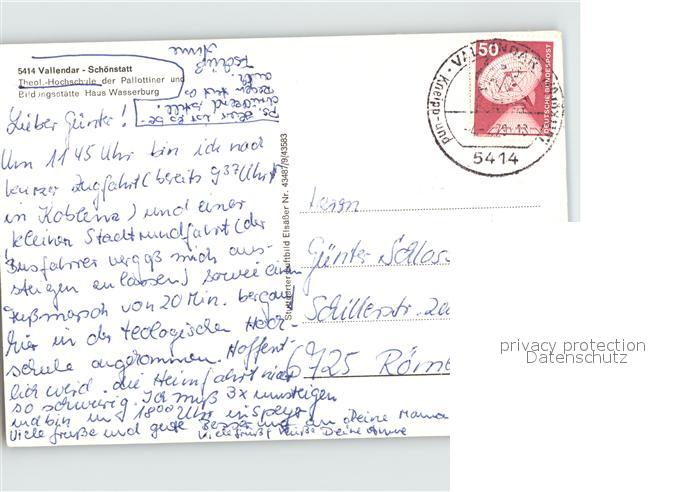 5414 Vallendar - Schönstatt
Theol.-Hochschule der Pallottiner und
Bildungsstätte Haus Wasserburg
Tschüß
Anne
Lieber Günter!
Um 11 45 Uhr bin ich nach
kurzer Zugfahrt (bereits 9 37 Uhr
in Koblenz) und einer
kleinen Stadtrundfahrt (der
Busfahrer vergaß mich aus-
steigen zu lassen) sowie einem
Fußmarsch von 20 Min. bergauf
hier in der teologischen Hoch-
schule angekommen. Hoffent-
lich wird die Heimfahrt nicht
so schwierig. Ich muß 3x umsteigen
und bin um 1800 Uhr in Speyer
Viele Grüße und gute Besserung an Deine Mama
Viele Grüße Deine Anne
Stuttgarter Luftbild Elsäßer Nr. 43487/9/43583
50
DEUTSCHE BUNDESPOST
VALLENDAR
Kneipp- und
5414
Herrn
Günter Schlos
Schillerstr. 20
6725 Röm
privacy protection
Datenschutz